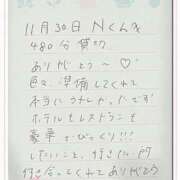 11月30日 Nくん♂
480分 貸切
ありがとう〜♡
色々 準備してくれて
本当にうれしかったです
ホテルもレストランも
豪華でびっくり!!!
したいこと、行きたい所
付き合ってくれてありがとう